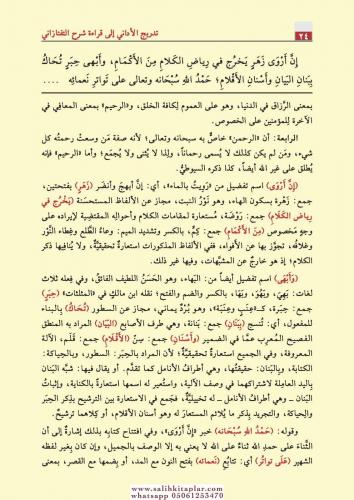 ٢٤
تدريج الأداني إلى قراءة شرح التفتازاني
إِنَّ أَرْوَى زَهَرٍ يَخْرُج في رِياضِ الكَلامِ مِنَ الأَكْمَامِ، وأَبْهى حِبَرٍ تُحَاكُ
بِبَنانِ البَيَانِ وأَسْنانِ الأَقْلامِ؛ حَمْدُ اللهِ سُبْحَانَه وتعالى على تَواتُرِ نَعمائِهِ ....
بمعنى الرزاق في الدنيا، وهو على العموم لكافة الخلق، و«الرحيم» بمعنى المعافي في
الآخرة للمؤمنين على الخصوص.
الرابعة: أن «الرحمن» خاصٌّ به سبحانه وتعالى؛ لأنه صفة مَن وسعتْ رحمتُه كل
شيء، ومَن لم يكن كذلك لا يُسمى رحماناً، ولذا لا يُثنى ولا يُجمَع؛ وأما «الرحيم» فإنه
يُطلق على غير الله أيضاً، كذا ذكره السيوطيُّ.
(إنَّ أَرْوَى) اسم تفضيل من «رَوِيتُ بالماء»، أي: إنَّ أبهجَ وأنضَر (زَهَرٍ) بفتحتين،
جمع: زَهْرة بسكون الهاء، وهو نَوْرُ النبت، مجاز عن الألفاظ المستحسَنة (يَخْرُج في
رِياضِ الكَلَامِ) جمع: رَوْضَة، مُستعارة لمقامات الكلام وأحوالِه المقتضِيةِ لإيراده على
وجهٍ مخصوص (مِنَ الأَكْمَامِ) جمع: كِمٍّ، بالكسر وتشديد الميم: وعاءُ الطَّلْع وغطاءُ النَّوْر
وغلافُه، تجوَّز بها عن الأفواه، ففي الألفاظ المذكورات استعارةٌ تحقيقيَّةٌ، ولا يُنافيها ذكر
الكلام؛ إذ هو خارجٌ عن المشبَّهات، وفيها غير ذلك.
(وأَبْهَى) اسم تفضيل أيضاً من: البَهاء، وهو الحَسَنُ اللطيف الفائق، وفي فعله ثلاث
لغات: بَهِيَ، وبَهُوَ، وبَهَا، بالكسر والضم والفتح؛ نقله ابن مالكٍ في «المثلثات» (حِبَرٍ)
جمع: حِبَرة، كـ«عِنَبٍ وعِنَبَة»، وهو بُرْدٌ يماني، مجاز عن السطور (تُحَاكُ) بالبناء
للمفعول، أي: تُنسج (بِبَنَانِ) جمع: بَنانة، وهي طرف الأصابع (البَيَانِ) المراد به المنطق
الفصيح المُعرِب عمَّا في الضمير (وأَسْنَانِ) جمع: سِنٍّ (الأَقْلَامِ) جمع: قَلَم، الآلة
المعروفة، وفي الجميع استعارةٌ تحقيقيَّةٌ؛ لأن المراد بالحِبَر: السطور، وبالحِياكة:
الكتابة، وبالبَنان: حقيقتُها، وهي أطرافُ الأنامل كما تقدَّم. أو يقال: فيها: شبَّه البَيَان
باليد العاملة لاشتراكهما في وصف الآلية، واستُعير له اسمها استعارةً بالكناية، وإثباتُ
البَنان ـ وهي أطراف الأنامل ـ له تخييليَّةٌ، فجَمع في الاستعارة بين الترشيح بذكر الحِبَر
والحِياكة، والتجريدِ بذكر ما يُلائم المستعارَ له وهو أسنان الأقلام، أو كِلاهما ترشيحٌ.
وقوله: (حَمْدُ اللهِ سُبْحَانَه) خبر «إنَّ أَرْوَى»، وفي افتتاح كتابِه بذلك إشارةٌ إلى أن
الثناءَ على حمدِ الله ثناءٌ على الله لا يعني به إلا الوصف بالجميل، وإن كان بغير لفظه
الشهيرِ (عَلَى تَواتُرِ) أي: تتابُعِ (نَعمائِه) بفتح النون مع المد، أو بضمها مع القصر، بمعنى
www.salihkitaplar.com
whatsapp 05061253470